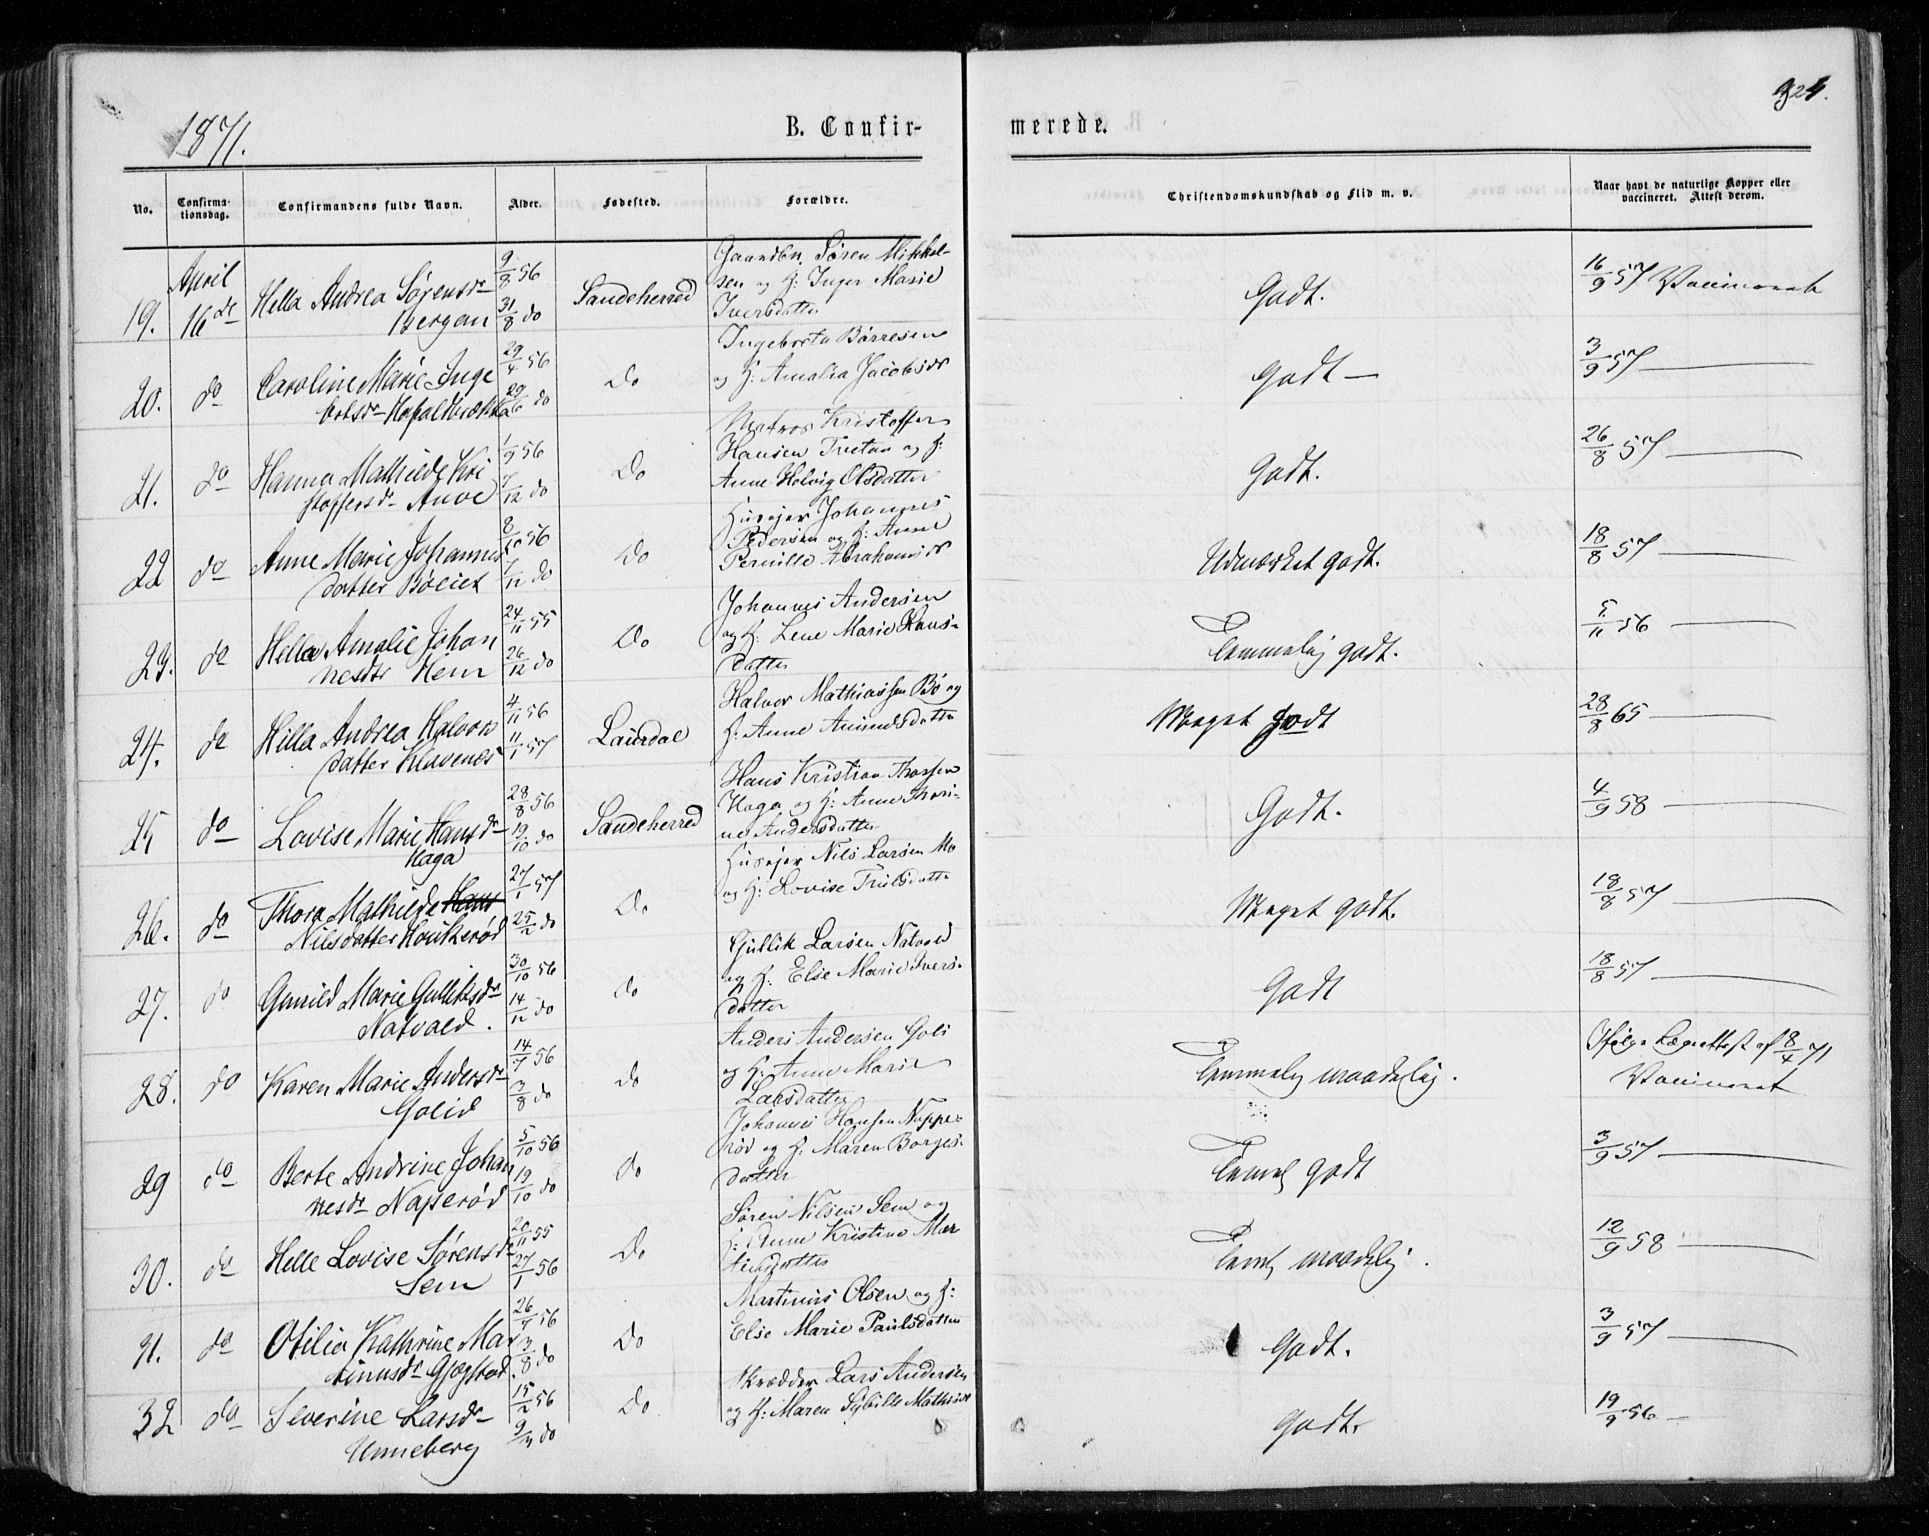 1871.
B. Confirmerede.
324.
No.
Confirma-
tionsdag.
Confirmandens fulde Navn.
Alder.
Fødested.
Forældre.
Christendomskundskab og Flid m. v.
Naar havt de naturlige Kopper eller
vaccineret. Attest derom.
April
19. 16de Hella Andrea Sørensdr
Bergan
9/8 56
31/8 do
Sandeherred
Gaardbr. Søren Mikkel-
sen og H: Inger Marie
Iversdatter
Godt.
16/9 57 Vaccineret
20. do Caroline Marie Inge
bretsdr
29/4 56
29/6 do
Do
Børresen
og H: Amalia Jacobsdr
Godt —
3/9 57 —
21. do Hanna Mathilde Kri
stoffersdr Auve
1/9 56
7/12 do
Do
Matros Kristoffer
Hansen og H:
Anne Helvig Olsdatter
Godt.
26/8 57 —
22 do Anne Marie Johannes
datter Bøeiet
8/10 56
7/12 do
Do
Huusejer Johannes
Pedersen og H: Anne
Pernille Abrahamsdr
Udmærket godt.
18/8 57 —
23. do Hella Amalie Johan
nesdr Hem
24/11 55
26/12 do
Do
Johannes Andersen
og H: Lene Marie Hans-
datter
Temmelig godt.
5/11 56 —
24. do Hella Andrea Halvors
datter Klavenes
4/11 56
11/1 57
Laurdal
Halvor Mathiassen Bø og
H: Anne Amundsdatter
Meget godt
28/8 65 —
25 do Lovise Marie Hansdr
Haga
28/8 56
19/10 do
Sandeherred
Hans Kristian Thorsen
Haga og H: Anne Mari-
ne Andersdatter
Godt.
4/9 58 —
26. do Thora Mathilde Hans
Nilsdatter Haukerød
27/1 57
25/2 do
Do
Huusejer Nils Larsen Mo
og H: Lovise Trulsdatter
Meget godt.
18/8 57 —
27. do Gunild Marie Gulliksdr
Natvald.
30/10 56
14/12 do
Do
Gullik Larsen Natvald
og H: Else Marie Ivers-
datter
Godt
18/8 57 —
28. do Karen Marie Andersdr
Golid
14/4 56
3/8 do
Do
Anders Andersen Goli
og H: Anne Marie
Larsdatter
Temmelig maadelig.
Ifølge Lægeattest af 8/4 71
Vaccineret
29 do Berte Andrine Johan
nesdr Napperød
5/10 56
19/10 do
Do
Johannes Hansen Nappe-
rød og H: Maren Borges-
datter
Temel. godt
3/9 57 —
30. do Helle Lovise Sørensdr
Sem
20/11 55
27/1 56
Do
Søren Nilsen Sem og
H: Anne Kristine Mar
tinsdatter
Teml. maadelig.
12/9 58 —
31. do Otilia Kathrine Mar
tinusdr Gjøgstad.
26/4 56
3/8 do
Do
Martinus Olsen og H:
Else Marie Paulsdatter
Godt.
3/9 57 —
32 do Severine Larsdr
Unneberg
15/2 56
9/3 do
Do
Skrædder Lars Andersen
og H: Maren Sybille Mathisdr
Godt.
19/9 56 —